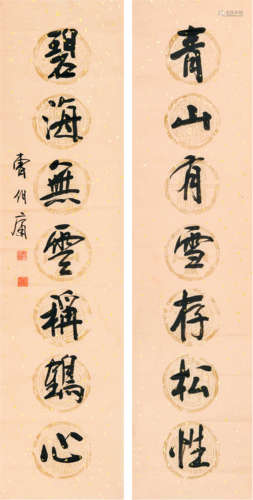 青山有雪存松性
碧海無雲稱鶴心
曹伯庸